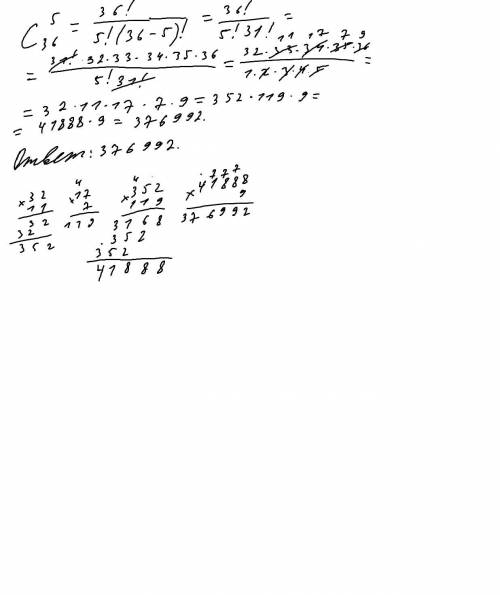 C₃₆⁵ = 36! / 5!(36-5)! = 36! / 5!31! =
= 31!·32·33·34·35·36 / 5!31! = 32·33·34·35·36 / 1·2·3·4·5 = 11 17 7 9
= 32·11·17·7·9 = 352·119·9 =
= 41888·9 = 376992.
Ответ: 376992.
×32 11 32 32 352
4 ×17 7 119
4 ×352 119 3168 352 352 41888
777 ×41888 9 376992